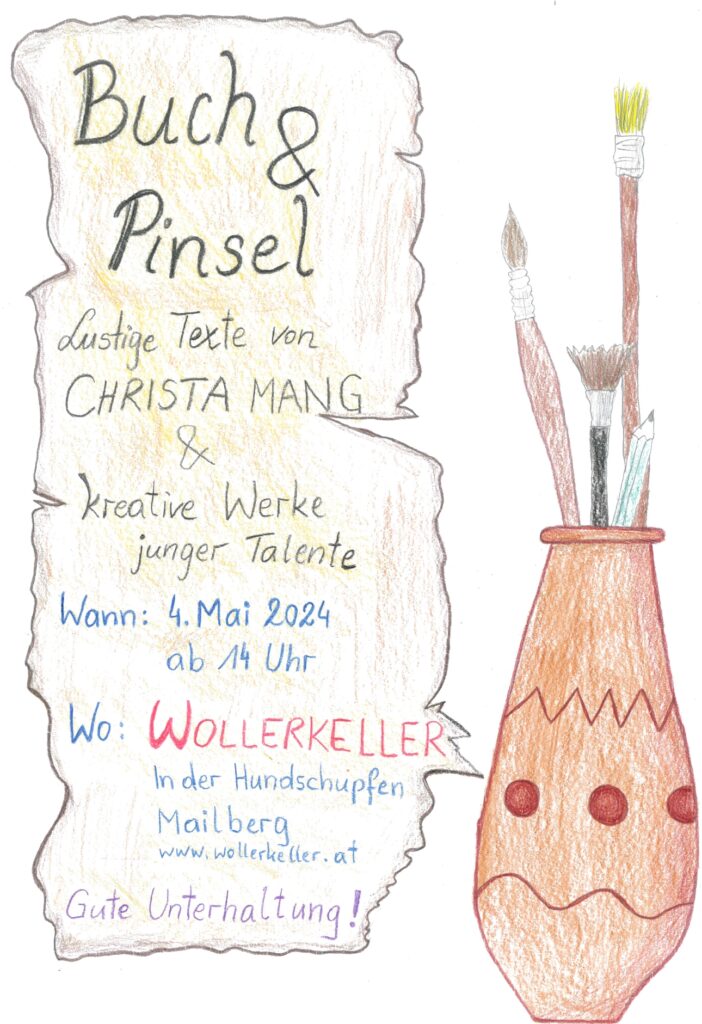 Buch
&
Pinsel
Lustige Texte von
CHRISTA MANG
&
kreative Werke
junger Talente
Wann: 4. Mai 2024
ab 14 Uhr
Wo: WOLLERKELLER
In der Hundschupfen
Mailberg
www.wollerkeller.at
Gute Unterhaltung!